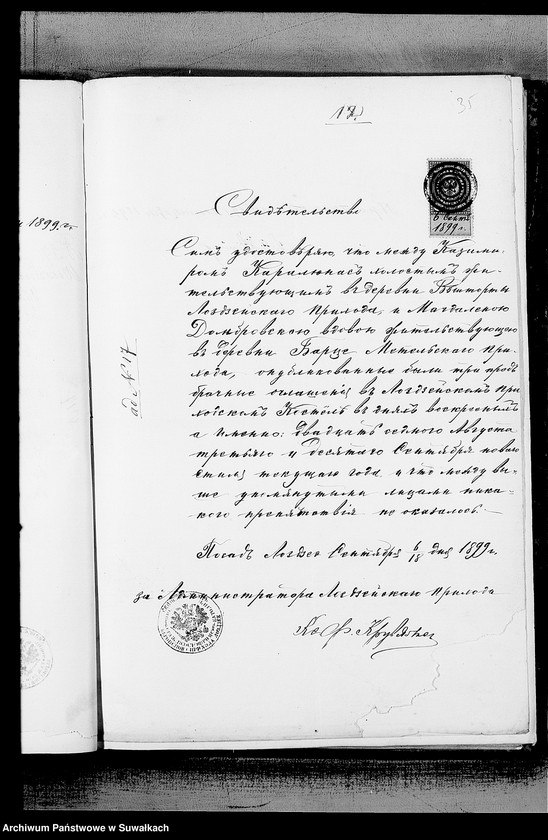 17.
35
6 Сент.
1899 г.
1899 г.
ad № 17
Свидѣтельство
Симъ удостовѣряю, что между Казими-
ромъ Каралюнасъ холостымъ жи-
тельствующимъ въ деревни
Лоздзейскаго прихода, и Магдаленою
Домбровскою вдовою жительствующею
въ деревни Барце Метельскаго при-
хода, опубликованные были три пред-
брачные оглашенія въ Лоздзейскомъ при-
ходскомъ Костёлѣ въ дняхъ воскресныхъ
а именно: двадцать седмого Августа
третьяго и десятаго Сентября новаго
стиля текущаго года и что между вы-
ше упомянутыми лицами ника-
кого препятствія не оказалось.
Посадъ Лоздзее Сентября 6/18 дня 1899 г.
за Администратора Лоздзейскаго прихода
Кс. Ф.
Archiwum Państwowe w Suwałkach